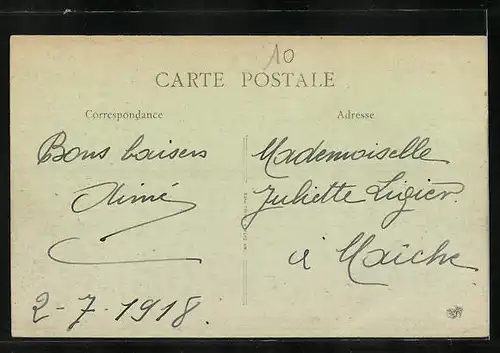 10
CARTE POSTALE
Correspondance
Adresse
Bons baisers
Aimé
2-7-1918.
Mademoiselle
Juliette Ligier.
à Maîche